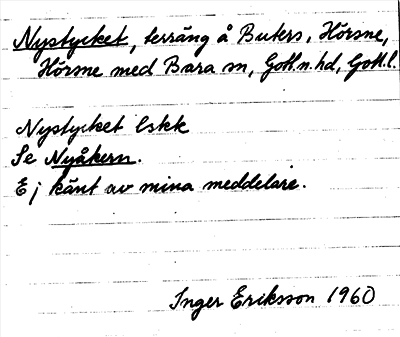 Nystycket, terräng å Buters, Hörsne,
Hörsne med Bara sn, Gotl.n.hd, Gotl.l.
Nystycket lskk
Se Nyåkern.
Ej känt av mina meddelare.
Inger Eriksson 1960